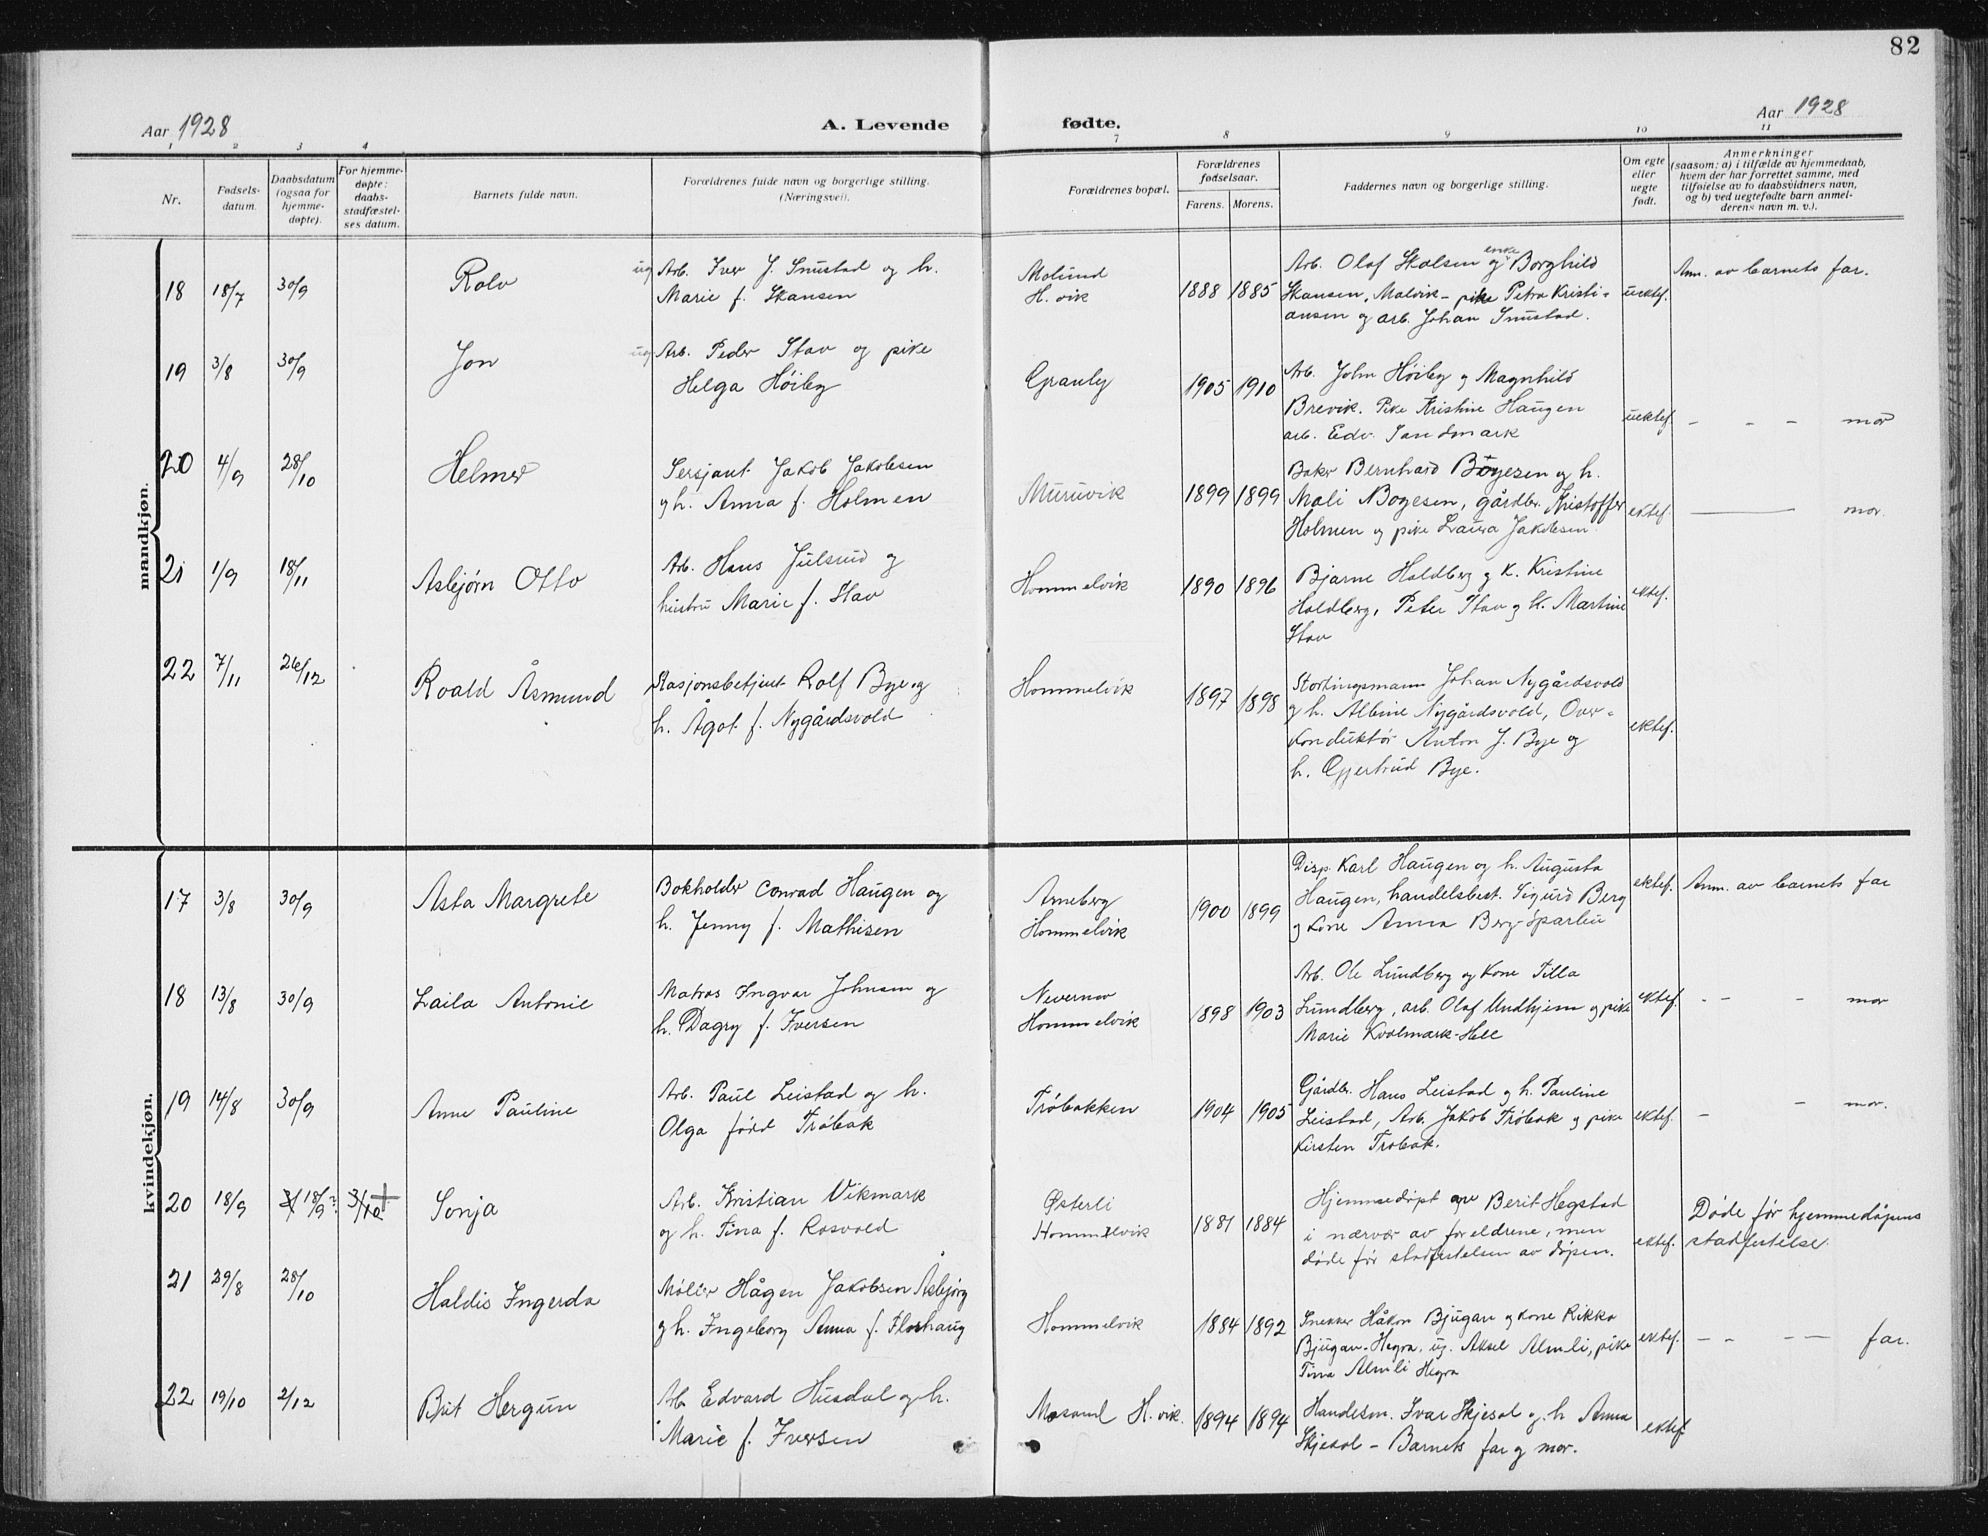 82
Aar 1928
A. Levende fødte.
Aar 1928
1 2 3 4 7 8 9 10 11
Nr.
Fødsels-
datum.
Daabsdatum
(ogsaa for
hjemme-
døpte).
For hjemme-
døpte:
daabs-
stadfæstel-
ses datum.
Barnets fulde navn.
Forældrenes fulde navn og borgerlige stilling.
(Næringsvei).
Forældrenes bopæl.
Forældrenes
fødselsaar.
Farens. Morens.
Faddernes navn og borgerlige stilling.
Om egte
eller
uegte
født.
Anmerkninger
(saasom: a) i tilfælde av hjemmedaab,
hvem der har forrettet samme, med
tilføielse av to daabsvidners navn,
og b) ved uegtefødte barn anmel-
derens navn m. v.).
mandkjøn.
18 18/7 30/9 Rolv
ug Arb. Iver J. Snustad og h.
Marie f. Skansen
Molund
H. vik
1888 1885
Arb. Olaf Stolsen og enke Borghild
Skansen, Malvik - pike Petra Kristi-
ansen og arb. Johan Snustad.
uektef.
Anm. av barnets far.
19 3/8 30/9 Jon
ug Arb. Peder Stav og pike
Helga Høiby
Granly
1905 1910
Arb. John Høiby og Magnhild
Brevik. Pike Kristine Haugen
arb. Edv. Sandmark
uektef.
- - - mor
20 4/9 28/10 Helmer
Sersjant Jakob Jakobsen
og h. Anna f. Holmen
Muruvik
1899 1899
Baker Bernhard Bøgesen og h.
Mali Bogesen, gårdbr. Kristoffer
Holmen og pike Laura Jakobsen
ektef.
mor.
21 1/9 18/11 Asbjørn Otto
Arb. Hans Julsrud og
hustru Marie f. Stav
Hommelvik
1890 1896
Bjarne Holdberg og k. Kristine
Holdberg, Peter Stav og k. Martine
Stav
ektef.
22 7/11 26/12 Roald Åsmund
Stasjonsbetjent Rolf Bye og
h. Ågot f. Nygårdsvold
Hommelvik
1897 1898
Stortingsmann Johan Nygårdsvold
og h. Albine Nygårdsvold, Over-
konduktør Anton J. Bye og
h. Gjertrud Bye.
ektef.
kvindekjøn.
17 3/8 30/9 Asta Margrete
Bokholder Conrad Haugen og
h. Jenny f. Mathisen
Arneberg
Hommelvik
1900 1899
Disp. Karl Haugen og h. Augusta
Haugen, handelsbest. Sigurd Berg
og kone Anna Berg-Sparbu
ektef.
Anm. av barnets far
18 13/8 30/9 Laila Antonie
Matros Ingvar Johnsen og
h. Dagny f. Iversen
Hommelvik
1898 1903
Arb. Ole Lundberg og kone Tilla
Lundberg, arb. Olaf Undhjem og pike
Marie Kvalmark-Hell
ektef.
- - - mor
19 14/8 30/9 Anne Pauline
Arb. Paul Leistad og h.
Olga född Trøbak
Trøbakken
1904 1905
Gårdbr. Hans Leistad og h. Pauline
Leistad, Arb. Jakob Trøbak og pike
Kirsten Trøbak.
ektef.
- - mor.
20 18/9 18/9? 3/10 + Sonja
Arb. Kristian Vikmark
og h. Tina f. Rosvold
Østerli
Hommelvik
1881 1884
Hjemmedøpt av Berit Hegstad
i nærvær av foreldrene, men
døde før stadfestelsen av døpen.
ektef.
Døde før hjemmedåpens
stadfestelse.
21 29/8 28/10 Haldis Ingerda
Møller Hågen Jakobsen Åsbjørg
og h. Ingeborg Anna f. Florhaug
Hommelvik
1884 1892
Snekker Håkon Bjugan og kone Rikka
Bjugan-Hegra, ug. Aksel Almli, pike
Tina Almli Hegra
ektef.
- - - - far.
22 19/10 2/12 Brit Hergun
Arb. Edvard Husdal og h.
Marie f. Iversen
H. vik.
1894 1894
Handelsm. Ivar Skjesol og h. Anna
Skjesol - Barnets far og mor.
ektef